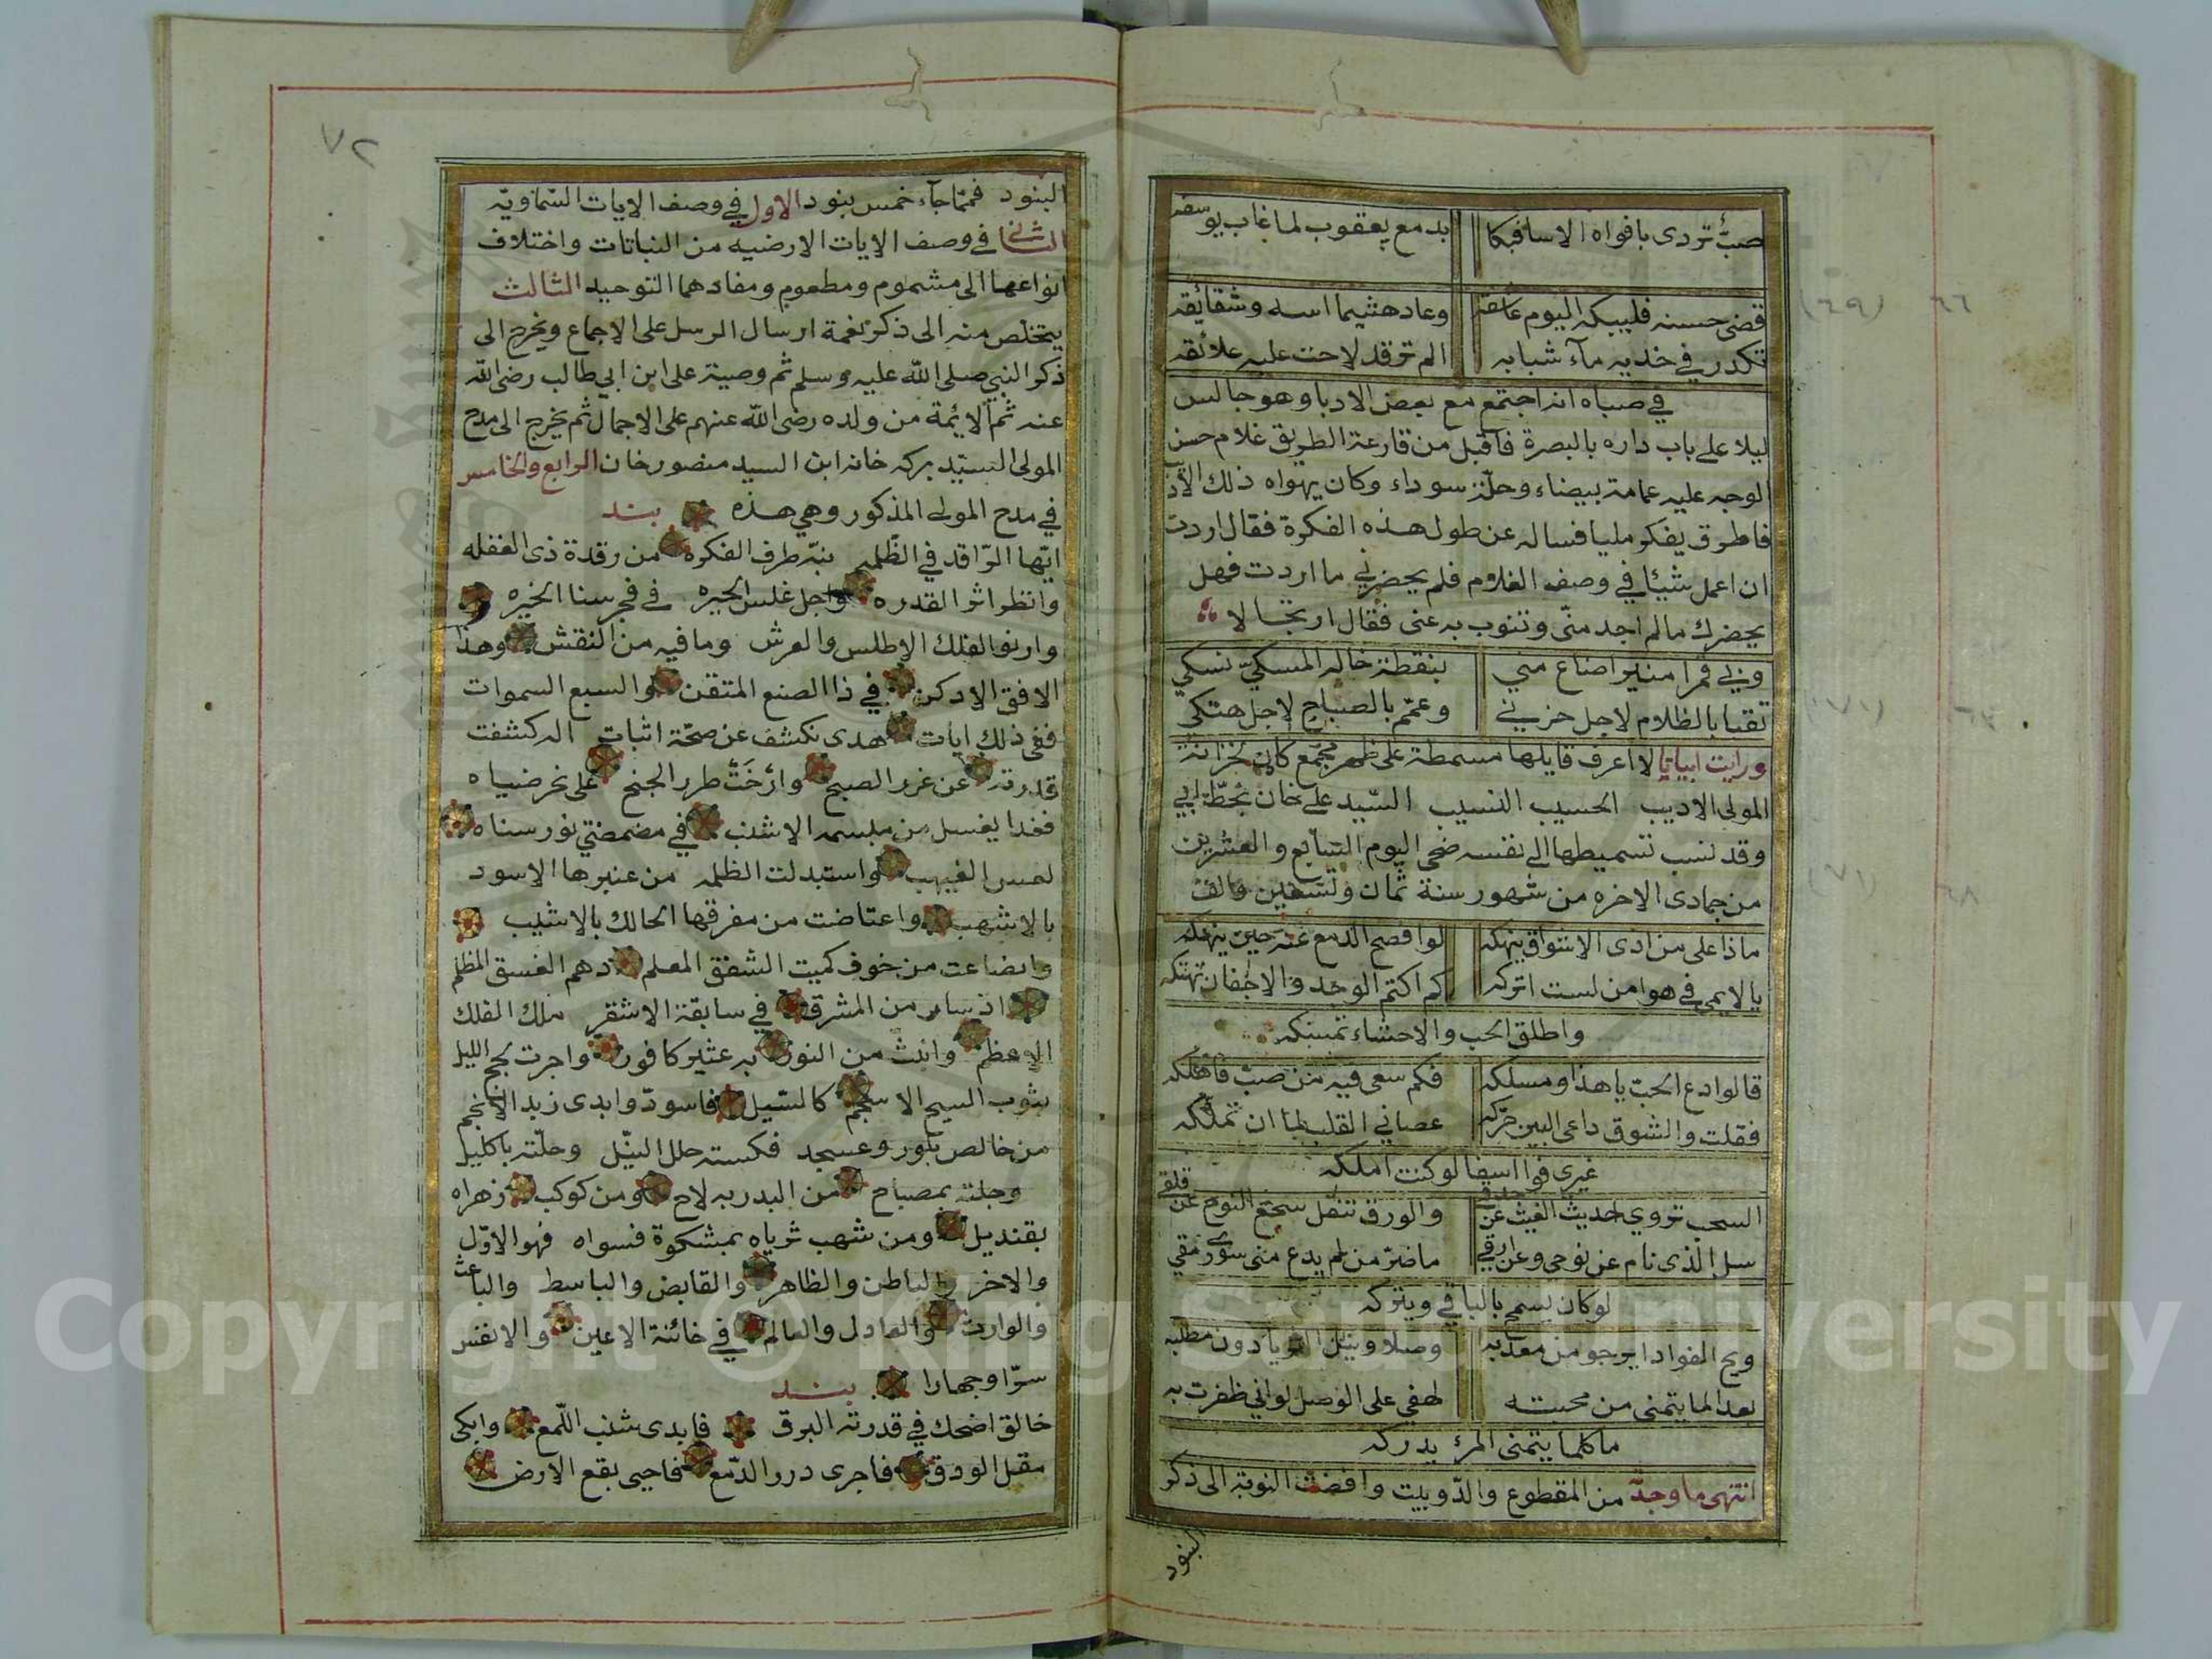 صبّ تردى بافواه الاسا فبكا بدمع يعقوب لما غاب يوسفه
قضى حسنه فليبكه اليوم عاشقه وعاد هشيما اسه وشقائقه
تكدر في خديه مآء شبابه الم تر قد لاحت عليه علائقه
في صباه انه اجتمع مع بعض الادبا وهو جالس
ليلا على باب داره بالبصرة فاقبل من قارعة الطريق غلام حسن
الوجه عليه عمامة بيضاء وحلّة سوداء وكان يهواه ذلك
فاطرق يفكر مليا فساله عن طول هذه الفكرة فقال اردت
ان اعمل شيئا في وصف الغلام فلم يحضرني ما اردت فهل
يحضرك ما لم اجد منّى وتنوب به عنى فقال ارتجالا
وبي قمرا منيرا ضاع مني بنقطة خاله المسكيّ نسكي
تقبا بالظلام لاجل حزني وعمّم بالصباح لاجل هتكي
ورايت ابياتا لا اعرف قايلها مسمطة على ظهر مجمّع كان بخزانة
المولى الاديب الحسيب النسيب السّيد على خان بخطّ ابي
وقد نسب تسميطها الى نفسه ضحى اليوم السّابع والعشرين
من جمادى الاخره من شهور سنة ثمان وتسعين والف
ماذا على من اذى الاشواق ينهكه لو افصح الدمع عنه حين ينهكه
يا لايمي في هوا من لست اتركه كم اكتم الوجد والاجفان تهتكه
واطلق الحب والاحشاء تمسكه
قالوا دع الحبّ يا هذا ومسلكه فكم سعى فيه من صبّ فاهلكه
فقلت والشوق داعى البين حرّكه عصاني القلب لما ان تملّكه
غيرى فوا اسفا لو كنت املكه
السحب تروي حديث الغيث عن حدقي والورق تنقل سجع النوح عن قلقي
سل الذى نام عن نوحى وعن ارقي ما ضرّ من لم يدع منى سوى رمقي
لو كان يسمح بالباقي ويتركه
ويح الفواد ايرجو من معذبه وصلا ونيل الثريا دون مطلبه
بعدا لما يتمنى من محبته لهفي على الوصل لو اني ظفرت به
ما كلما يتمنى المرء يدركه
انتهى ما وجد من المقطوع والدّوبيت وافضت النوبة الى ذكر
البنود
٧٢
البنود فممّا جآء خمس بنود الاول في وصف الايات السّماويّه
الثاني في وصف الايات الارضيه من النباتات واختلاف
انواعها الى مشموم ومطعوم ومفادهما التوحيد الثالث
يتخلص منه الى ذكر نغمة ارسال الرسل على الاجماع ويخرج الى
ذكر النبي صلى الله عليه وسلم ثم وصيّة على ابن ابي طالب رضى الله
عنه ثم الائمة من ولده رضى الله عنهم على الاجمال ثم يخرج الى مدح
المولى السيّد بركه خانه ابن السيد منصور خان الرابع والخامس
في مدح المولى المذكور وهي هذه بند
ايّها الرّاقد في الظّلمه نبّه طرف الفكره من رقدة ذى الغفله
وانظر اثر القدره واجل غلس الحيره في فجر سنا الخيره
وارنو الفلك الاطلس والعرش وما فيه من النقش وهذا
الافق الادكن في ذا الصنع المتقن والسبع السموات
ففى ذلك ايات هدى تكشف عن صحّة اثبات اله كشفت
قدرته عن غرر الصبح وارخت طرر الجنح على نحر ضياه
فغدا يغسل من مبسمه الاشنب في مضمضتي نور سناه
لعس الغيهب واستبدلت الظلمه من عنبرها الاسود
بالاشهب واعتاضت من مفرقها الحالك بالاشيب
وانصاعت من خوف كميت الشفق المعلم دهم الغسق المظلم
اذ سار من المشرق في سابقة الاشقر ملك الفلك
الاعظم وانبث من النور به عثير كافور واجرت لجج الليل
بثوب السبح الاسحم كالسّيل فاسودّ وابدى زبد الانجم
من خالص بلّور وعسجد فكسته حلل النيّل وحلّته باكليل
وجلته بمصباح من البدر به لاح ومن كوكب زهراه
بقنديل ومن شهب ثرياه بمشكوة فسواه فهو الاوّل
والاخر والباطن والظاهر والقابض والباسط والباعث
والوارث والعادل والعالم في خائنة الاعين والانفس
سرّا وجهارا بند
خالق اضحك في قدرته البرق فابدى شنب اللّمع وابكى
مقل الودق فاجرى درر الدّمع فاحيى بقع الارض
Copyright © King Saud University